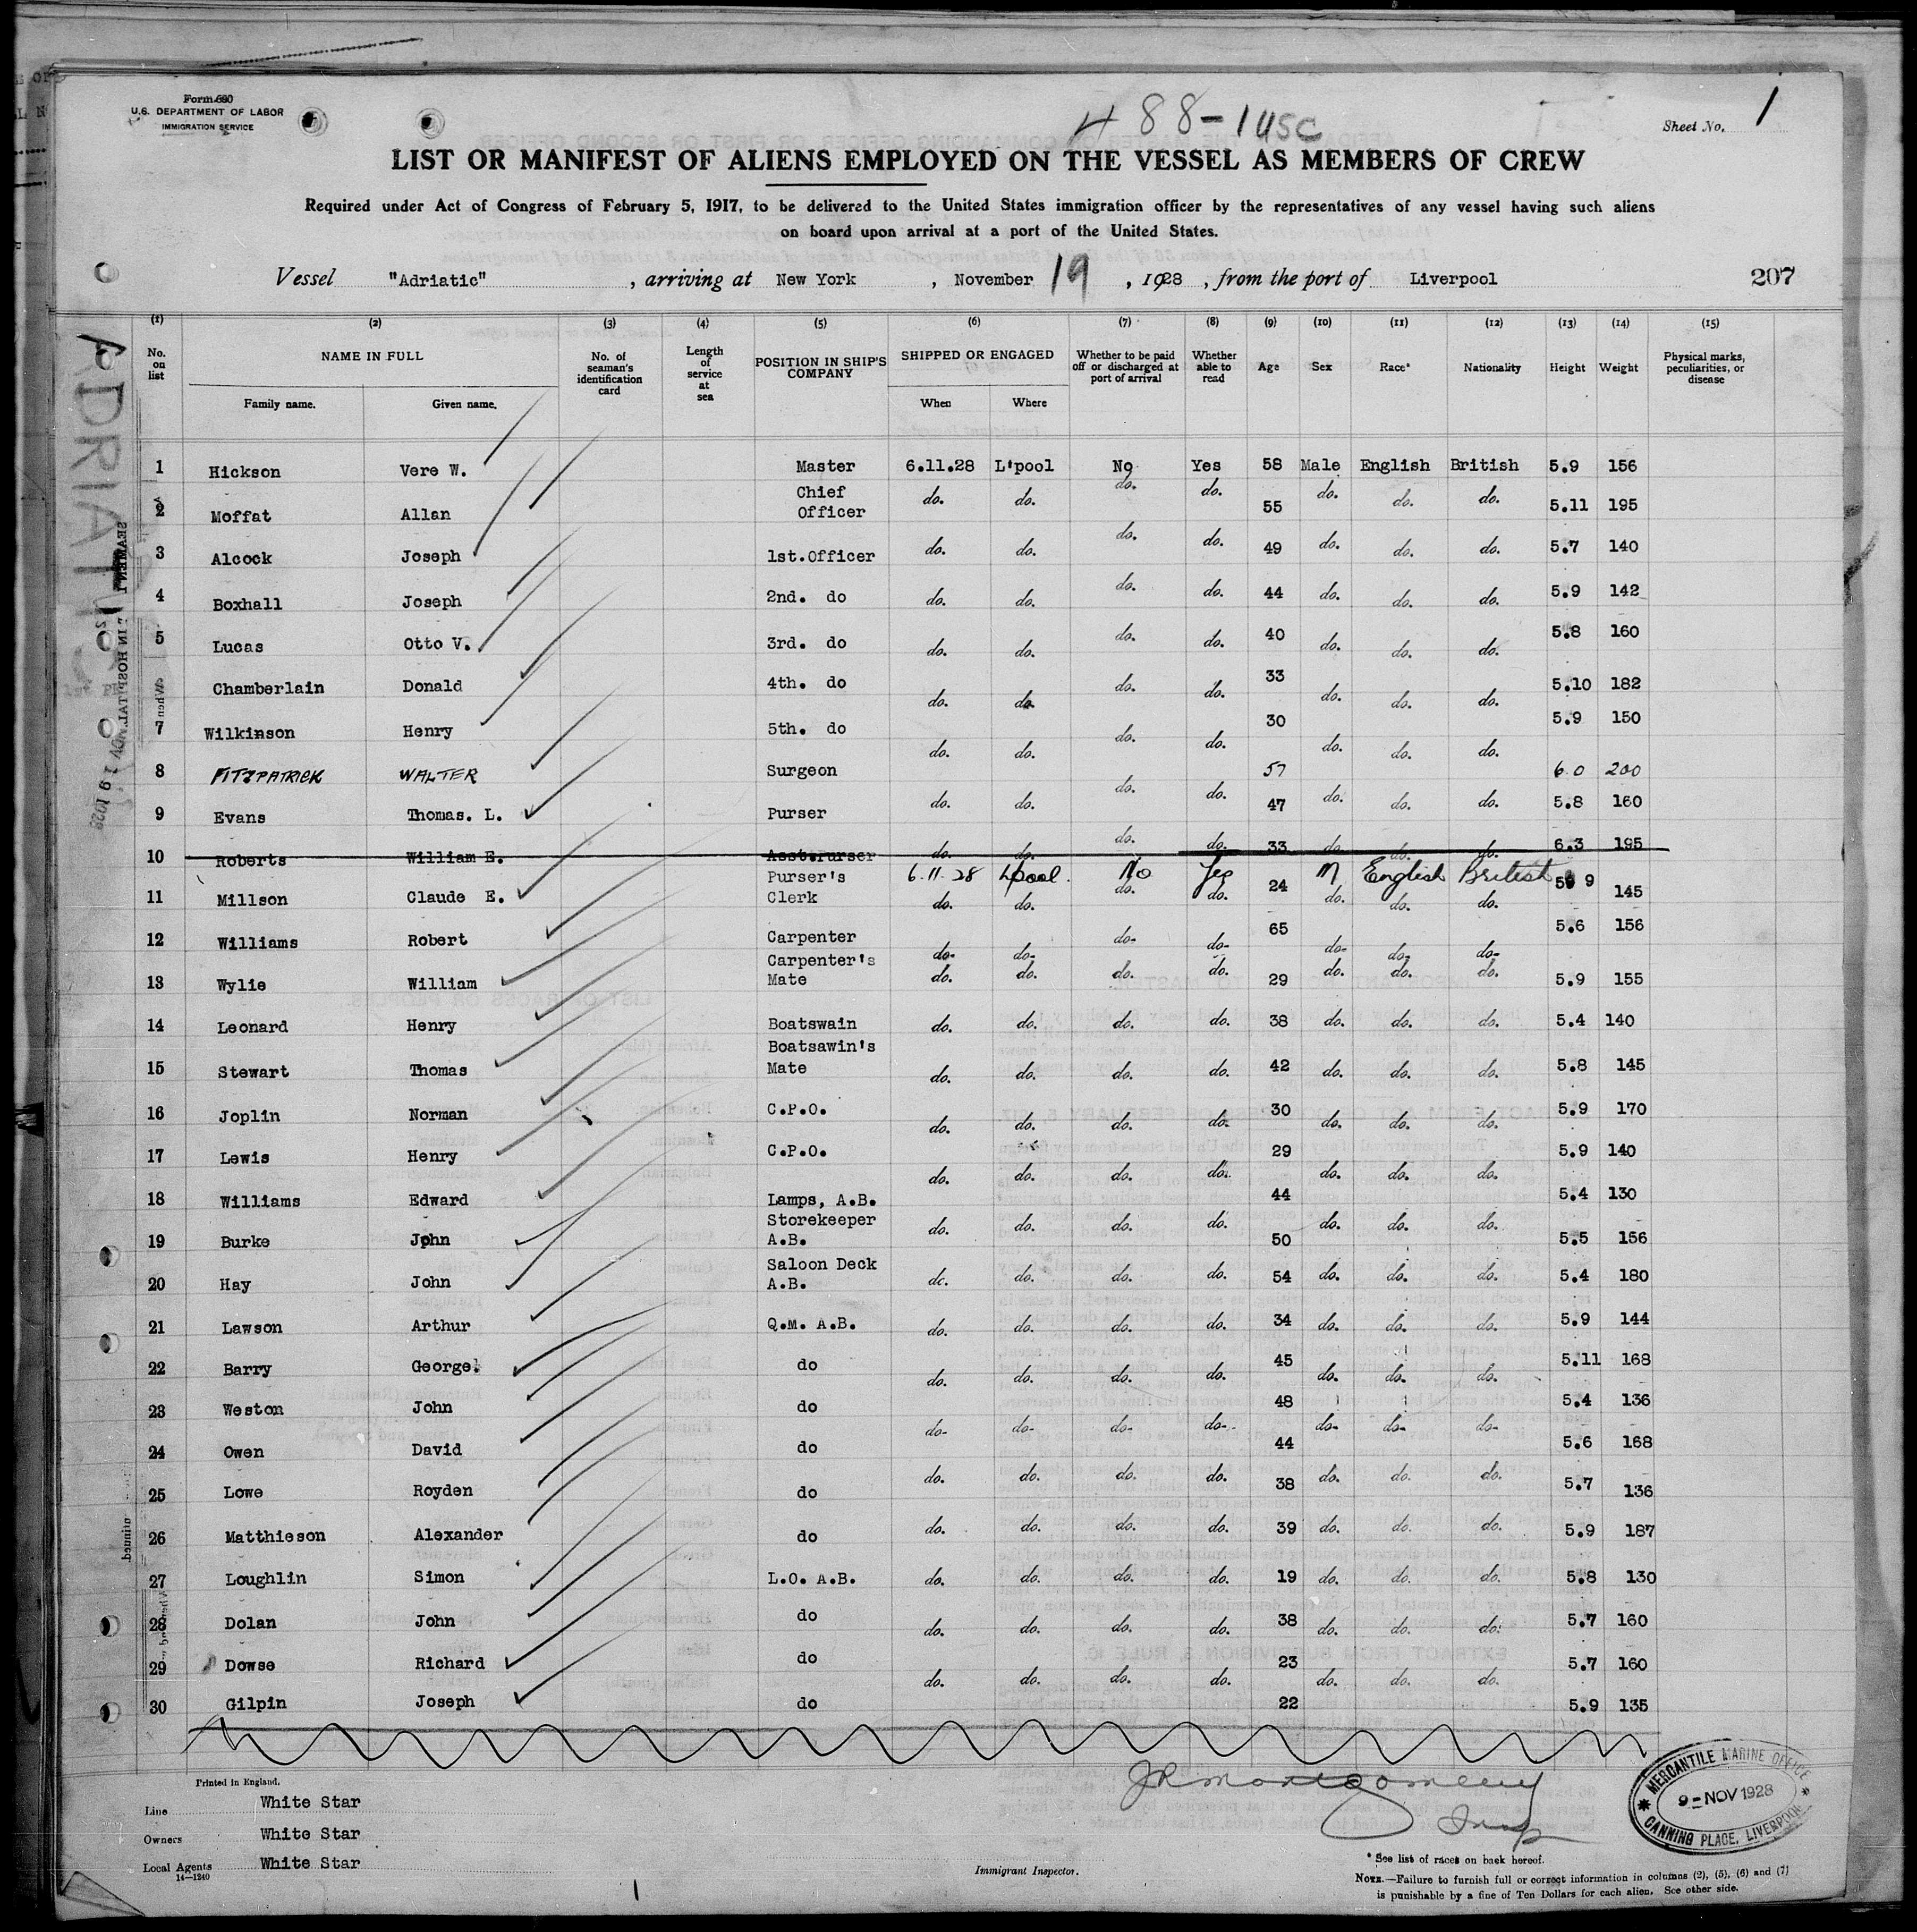 Form 680
U.S. DEPARTMENT OF LABOR
IMMIGRATION SERVICE
488-1 USC
Sheet No. 1
LIST OR MANIFEST OF ALIENS EMPLOYED ON THE VESSEL AS MEMBERS OF CREW
Required under Act of Congress of February 5, 1917, to be delivered to the United States immigration officer by the representatives of any vessel having such aliens
on board upon arrival at a port of the United States.
Vessel "Adriatic", arriving at New York, November 19, 1928, from the port of Liverpool
207
(1) (2) (3) (4) (5) (6) (7) (8) (9) (10) (11) (12) (13) (14) (15)
No. on list
NAME IN FULL
Family name. Given name.
No. of seaman's identification card
Length of service at sea
POSITION IN SHIP'S COMPANY
SHIPPED OR ENGAGED
When Where
Whether to be paid off or discharged at port of arrival
Whether able to read
Age Sex Race* Nationality Height Weight
Physical marks, peculiarities, or disease
1 Hickson Vere W. Master 6.11.28 L'pool No Yes 58 Male English British 5.9 156
2 Moffat Allan Chief Officer do. do. do. do. 55 do. do. do. 5.11 195
3 Alcock Joseph 1st.Officer do. do. do. do. 49 do. do. do. 5.7 140
4 Boxhall Joseph 2nd. do do. do. do. do. 44 do. do. do. 5.9 142
5 Lucas Otto V. 3rd. do do. do. do. do. 40 do. do. do. 5.8 160
Chamberlain Donald 4th. do do. do. do. do. 33 do. do. do. 5.10 182
7 Wilkinson Henry 5th. do do. do. do. do. 30 do. do. do. 5.9 150
8 FITZPATRICK WALTER Surgeon 57 6.0 200
9 Evans Thomas. L. Purser do. do. do. do. 47 do. do. do. 5.8 160
10 Roberts William E. Asst.Purser do. do. do. do. 33 do. do. do. 6.3 195
6.11.28 Lpool. No Yes M English British
11 Millson Claude E. Purser's Clerk do. do. do. do. 24 do. do. do. 5 9 145
12 Williams Robert Carpenter do- do- do- do- 65 do- do- do- 5.6 156
13 Wylie William Carpenter's Mate do. do. do. do. 29 do. do. do. 5.9 155
14 Leonard Henry Boatswain do. do. do. do. 38 do. do. do. 5.4 140
15 Stewart Thomas Boatsawin's Mate do. do. do. do. 42 do. do. do. 5.8 145
16 Joplin Norman C.P.O. do. do. do. do. 30 do. do. do. 5.9 170
17 Lewis Henry C.P.O. do. do. do. do. 29 do. do. do. 5.9 140
18 Williams Edward Lamps, A.B. 44 5.4 130
19 Burke John Storekeeper A.B. do. do. do. do. 50 do. do. do. 5.5 156
20 Hay John Saloon Deck A.B. do. do. do. do. 54 do. do. do. 5.4 180
21 Lawson Arthur Q.M. A.B. do. do. do. do. 34 do. do. do. 5.9 144
22 Barry George. do do. do. do. do. 45 do. do. do. 5.11 168
23 Weston John do do- do- do- do- 48 do- do- do- 5.4 136
24 Owen David do 44 5.6 168
25 Lowe Royden do do. do. do. do. 38 do. do. do. 5.7 136
26 Matthieson Alexander do do. do. do. do. 39 do. do. do. 5.9 187
27 Loughlin Simon L.O. A.B. do. do. do. do. 19 do. do. do. 5.8 130
28 Dolan John do do. do. do. do. 38 do. do. do. 5.7 160
29 Dowse Richard do do. do. do. do. 23 do. do. do. 5.7 160
30 Gilpin Joseph do 22 5.9 135
Printed in England.
Line White Star
Owners White Star
Local Agents White Star
14—1240
1
JR Montgomery
Insp
Immigrant Inspector.
MERCANTILE MARINE OFFICE
9-NOV 1928
CANNING PLACE, LIVERPOOL
* See list of races on back hereof.
NOTE.—Failure to furnish full or correct information in columns (2), (5), (6) and (7)
is punishable by a fine of Ten Dollars for each alien. See other side.
ADRIATIC